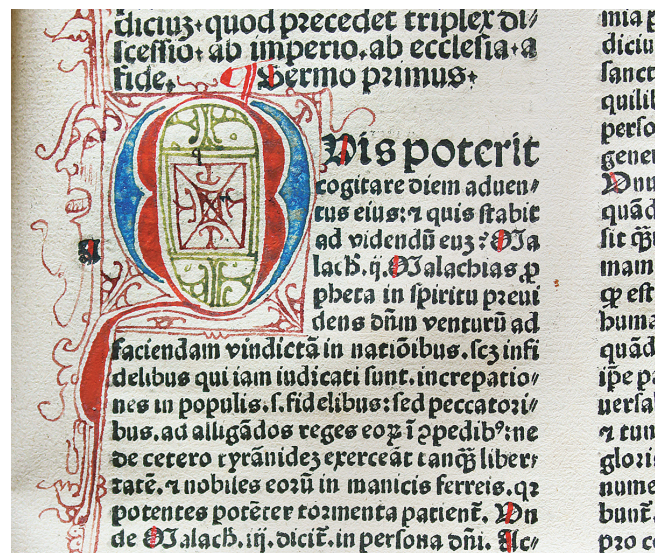 diciuz·quod precedet triplex di⸗
scessio·ab imperio.ab ecclesia·a
fide. ¶ Sermo primus·
q
Vis poterit
cogitare diem aduen⸗
tus eius:⁊ quis stabit
ad videndũ euz? Ma
lach. ij. Malachias ꝓ
pheta in spiritu preui
dens dñm venturũ ad
A
faciendam vindictã in natiõibus.scz infi
delibus qui iam iudicati sunt.increpatio⸗
nes in populis.s.fidelibus:sed peccatori⸗
bus.ad alligãdos reges eoꝝ ĩ ꝯpedibꝰ:ne
de cetero tyrãnidez exerceãt tanq̃ȝ liber⸗
tatẽ.⁊ nobiles eorũ in manicis ferreis.qꝛ
potentes potẽter tormenta patient̃. Vn
de Malach. iij. dicit̃.in persona dñi. Ac⸗
mia
diciu
sanct
quilib
perso
gener
Vnu
quãd
sit
mam
ꝙ est
huma
quãd
ip̃e
uersa
⁊ tun
gloris
nume
bunt̃.
pro